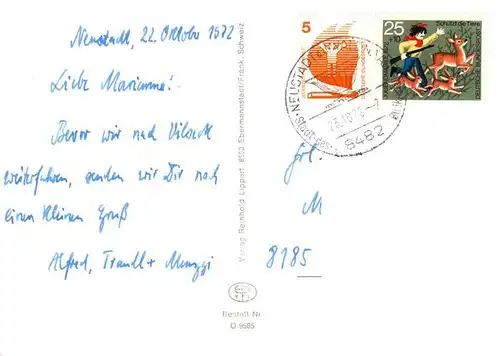 Neustadt, 22. Oktober 1972
Liebe Marianne!
Bevor wir nach Vilseck
weiterfahren, senden wir Dir noch
einen kleinen Gruß
Alfred, Traudl + Muggi
Verlag Reinhold Lippert, 8553 Ebermannstadt/Fränk. Schweiz
Bestell-Nr.
D 9585
5
25
Schützt die Tiere
NEUSTADT
Stadt des
8482
Frl.
M
8185